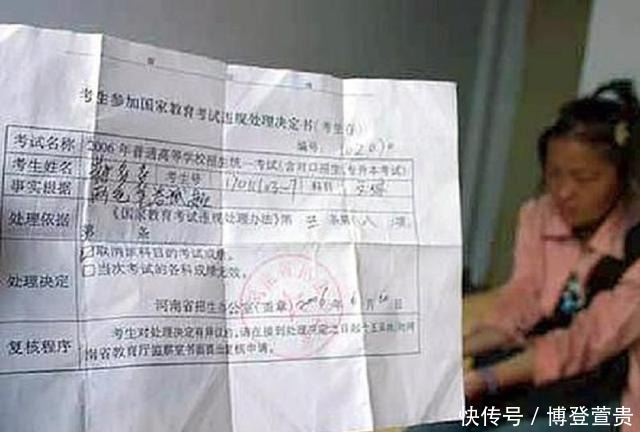 考生参加国家教育考试违规处理决定书(考生
编号:
考试名称 2006年普通高等学校招生统一考试(含对口招生、专升本考试)
考生姓名 考生号 科目
事实根据
处理依据 《国家教育考试违规处理办法》第 三 条第 八 项、
第 条
处理决定 □取消该科目的考试成绩。
□当次考试的各科成绩无效。
河南省招生办公室(盖章) 2006年6月 日
复核程序 考生对处理决定有异议的,请在接到处理决定之日起十五日内,向河
南省教育厅监察室书面提出复核申请。
快传号/博登萱贵